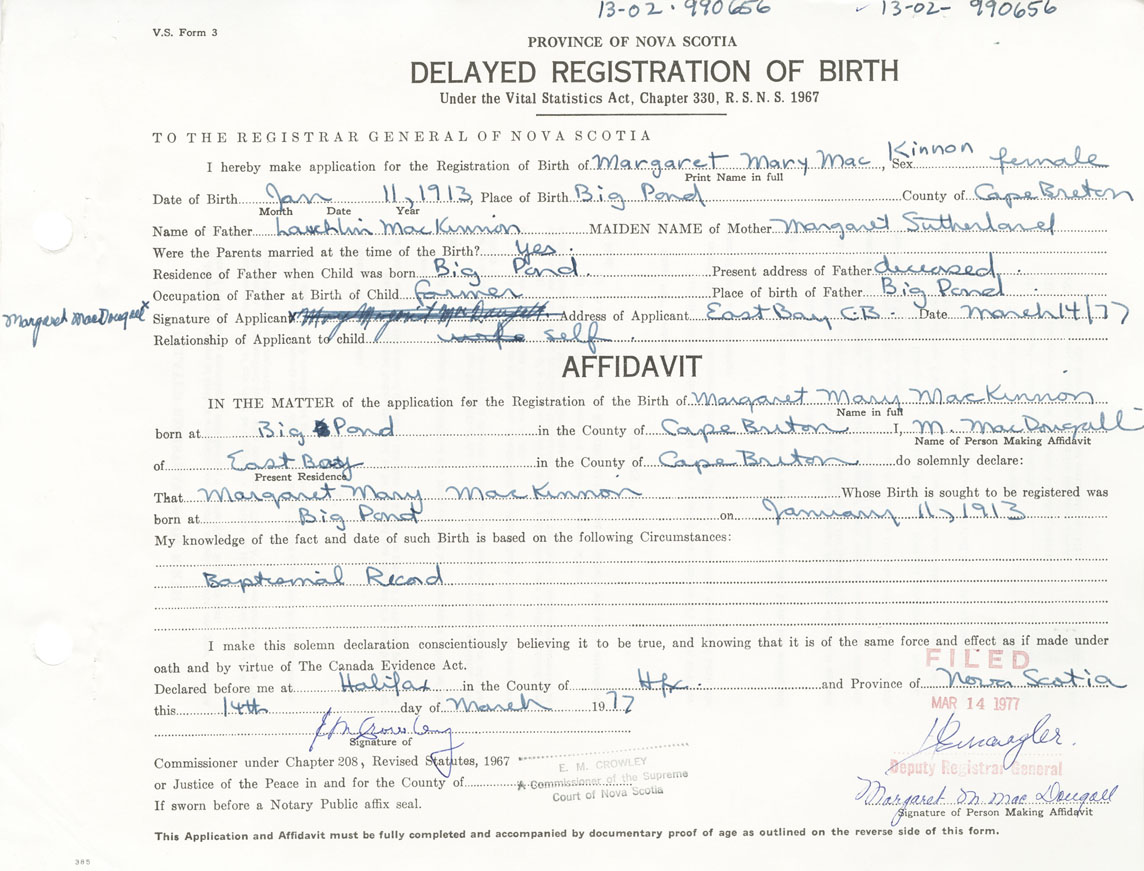 13-02-990656 13-02-990656
V.S. Form 3
PROVINCE OF NOVA SCOTIA
DELAYED REGISTRATION OF BIRTH
Under the Vital Statistics Act, Chapter 330, R.S.N.S. 1967
TO THE REGISTRAR GENERAL OF NOVA SCOTIA
I hereby make application for the Registration of Birth of Margaret Mary Mac Kinnon, Sex female
Print Name in full
Date of Birth Jan 11, 1913, Place of Birth Big Pond County of Cape Breton
Month Date Year
Name of Father Lauchlin MacKinnon MAIDEN NAME of Mother Margaret Sutherland
Were the Parents married at the time of the Birth? Yes.
Residence of Father when Child was born Big Pond. Present address of Father deceased
Occupation of Father at Birth of Child farmer Place of birth of Father Big Pond
Margaret MacDougall x Signature of Applicant x Address of Applicant East Bay C.B. Date March 14/77
Relationship of Applicant to child self
AFFIDAVIT
IN THE MATTER of the application for the Registration of the Birth of Margaret Mary MacKinnon
Name in full
born at Big Pond in the County of Cape Breton I, M. MacDougall
Name of Person Making Affidavit
of East Bay in the County of Cape Breton do solemnly declare:
Present Residence
That Margaret Mary MacKinnon Whose Birth is sought to be registered was
born at Big Pond on January 11, 1913
My knowledge of the fact and date of such Birth is based on the following Circumstances:
Baptismal Record
I make this solemn declaration conscientiously believing it to be true, and knowing that it is of the same force and effect as if made under
oath and by virtue of The Canada Evidence Act.
FILED
Declared before me at Halifax in the County of Hfx. and Province of Nova Scotia
this 14th day of March 1977
MAR 14 1977
E M Crowley
Signature of
Commissioner under Chapter 208, Revised Statutes, 1967
E. M. CROWLEY
Deputy Registrar General
or Justice of the Peace in and for the County of
A Commissioner of the Supreme
Court of Nova Scotia
Margaret M MacDougall
If sworn before a Notary Public affix seal.
Signature of Person Making Affidavit
This Application and Affidavit must be fully completed and accompanied by documentary proof of age as outlined on the reverse side of this form.
385